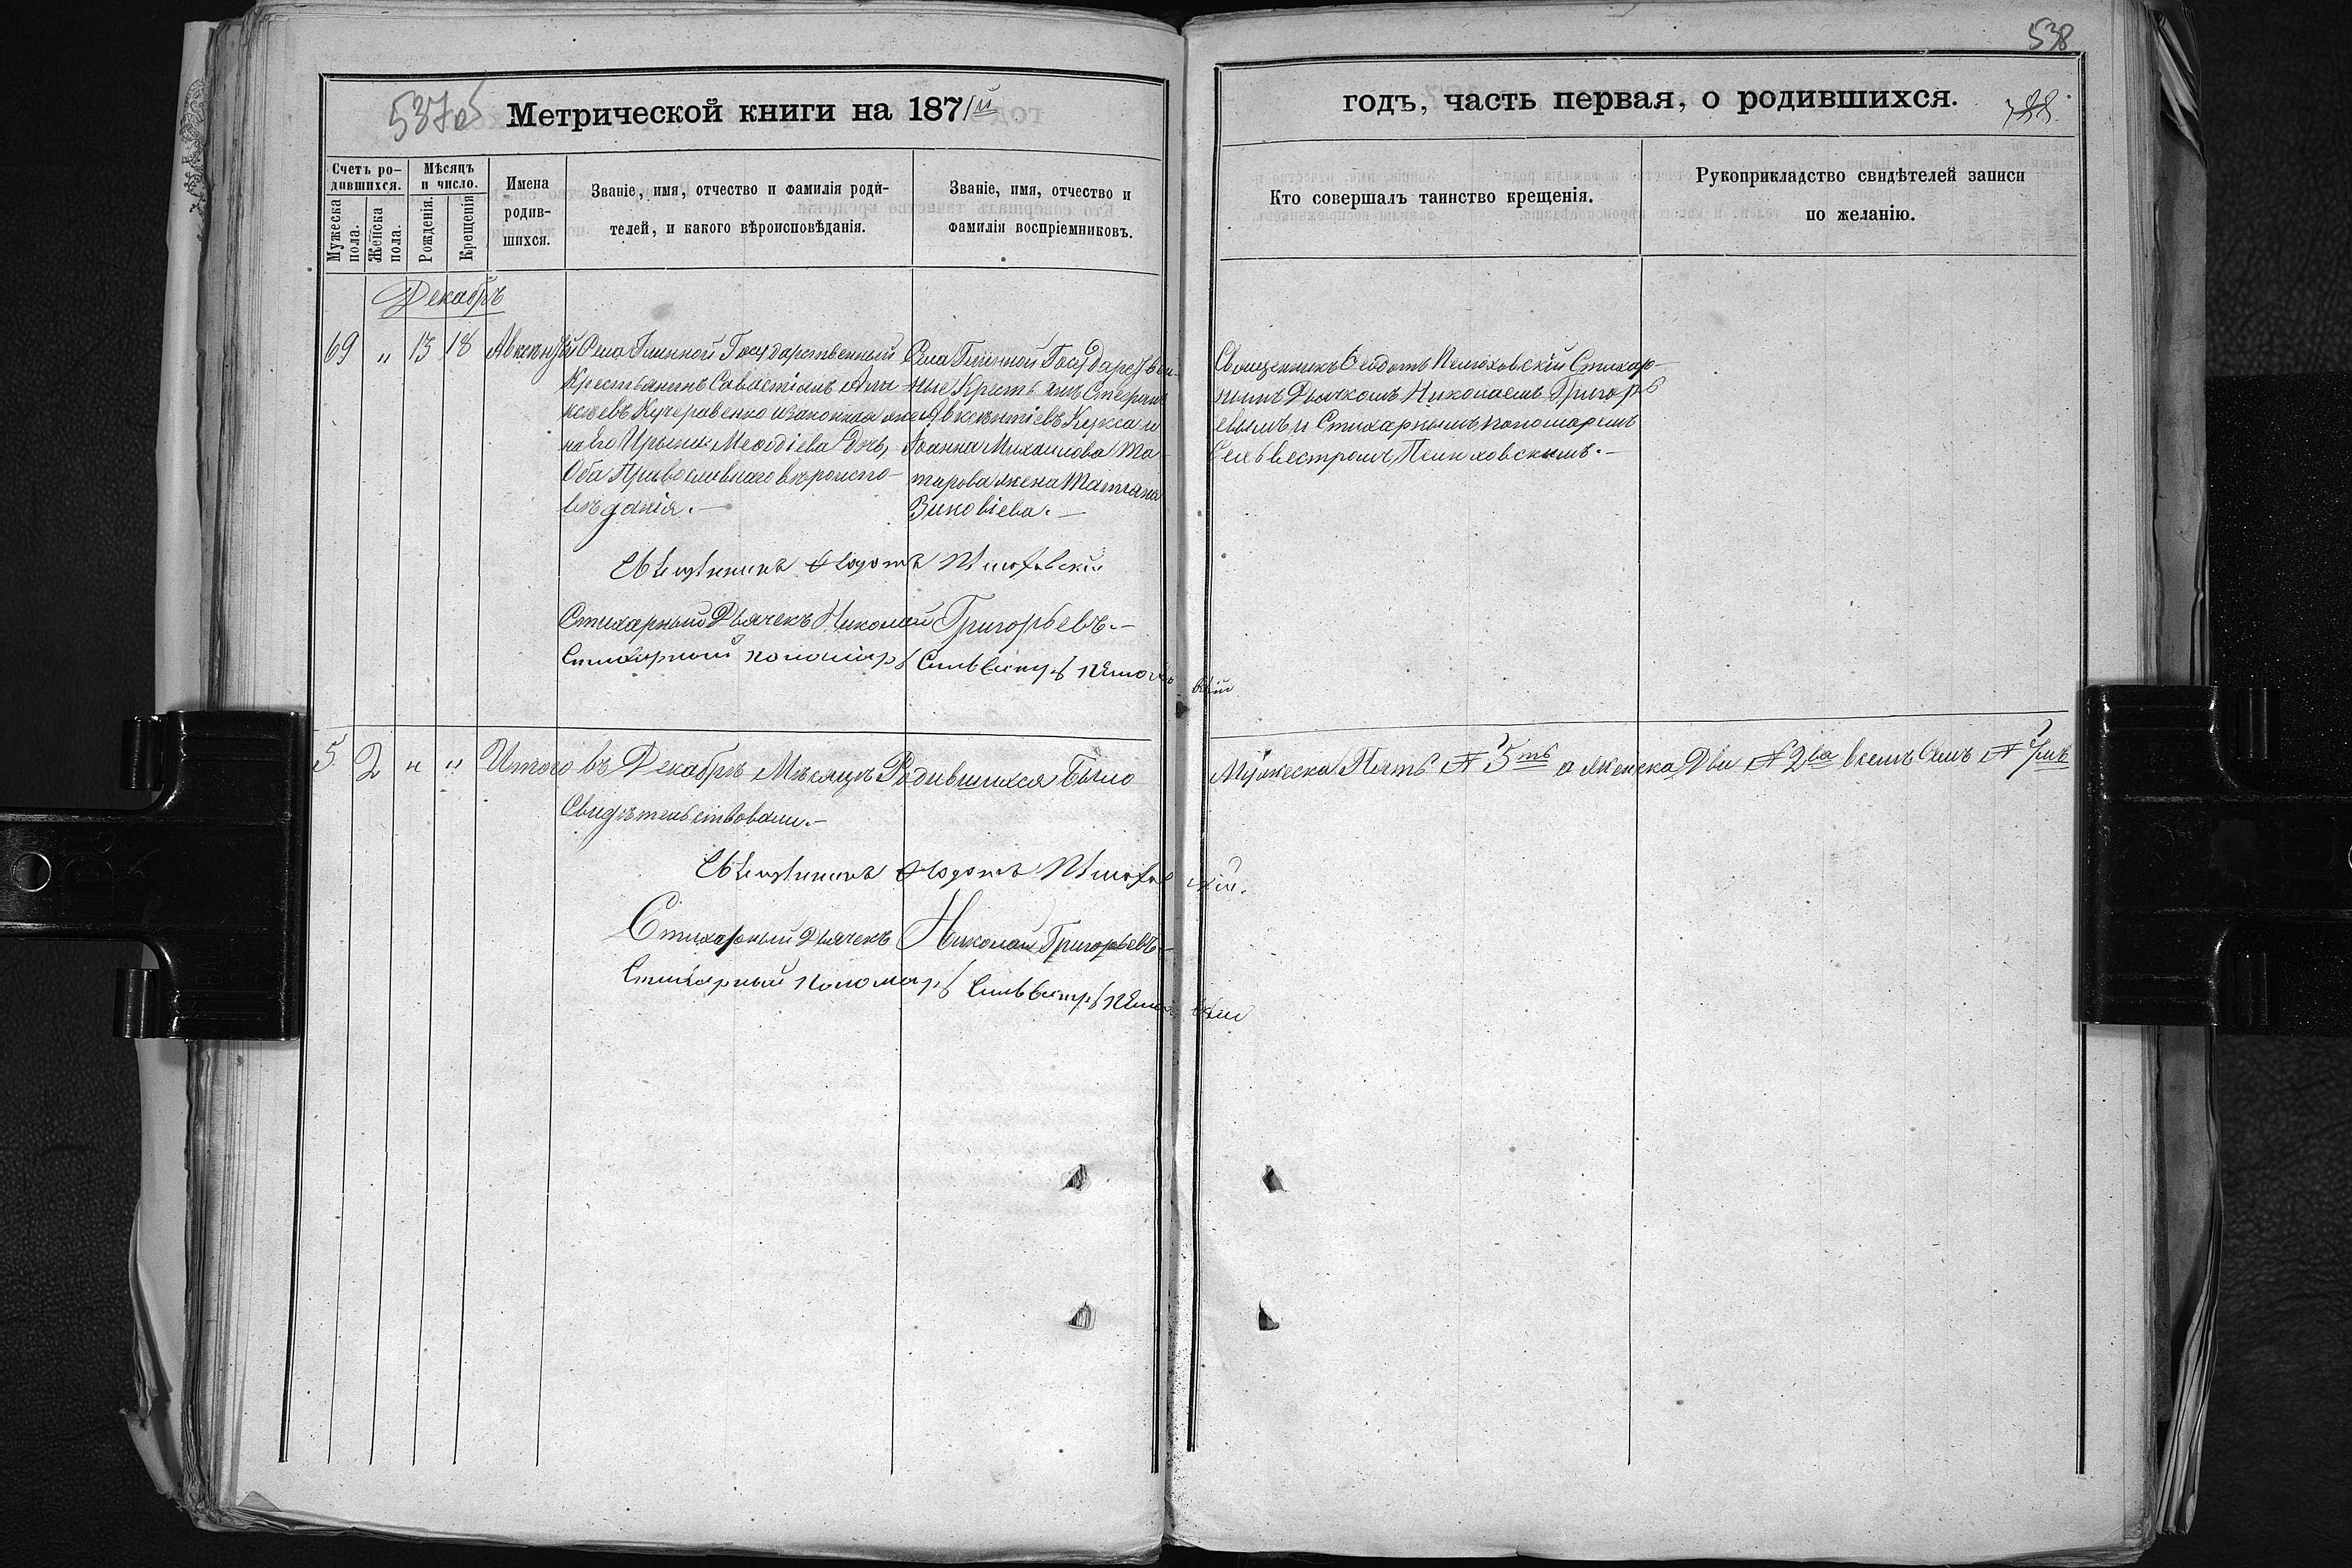 537об
Метрической книги на 1871й
Счетъ родившихся.
Мужеска пола.
Женска пола.
Мѣсяцъ и число.
Рожденія.
Крещенія
Имена
родив-
шихся.
Званіе, имя, отчество и фамилія роди-
телей, и какого вѣроисповѣданія.
Званіе, имя, отчество и
фамилія воспріемниковъ.
Декабрь
69 " 13 18
Села Глинной Государственный
Крестьянинъ Савастіянъ Але-
ксѣевъ Кучеравенко изаконная же-
на его Ирына Меѳодіева Дочь,
Оба Православнаго вѣроиспо-
вѣданія.-
Села Глинной Государствен-
ные Крестьянъ Стефанъ
Авксентіевъ Кукса и
Іоанна Михаилова
жена Татіана
Зиновіева.-
Священникъ Ѳеодотъ
Стихарный Дьячекъ Николай Григорьевъ.-
Стихарный пономарь Сильвестръ
5 2 " " Итого въ Декабрѣ Мѣсяцѣ Родившихся Было
Свидѣтельствовали.-
Священникъ Ѳеодотъ
Стихарный Дьячекъ Николай Григорьевъ-
Стихарный Пономарь Сильвестръ
538
годъ, часть первая, о родившихся.
Кто совершалъ таинство крещенія.
Рукоприкладство свидѣтелей записи
по желанію.
Священникъ Ѳеодотъ Стихар-
нымъ Дьячкомъ Николаемъ Григорь
евымъ и Стихарнымъ пономаремъ
Сельвестромъ
Мужеска Пять № 5ть а женска Две № 2ва всемъ Семъ № 7мь